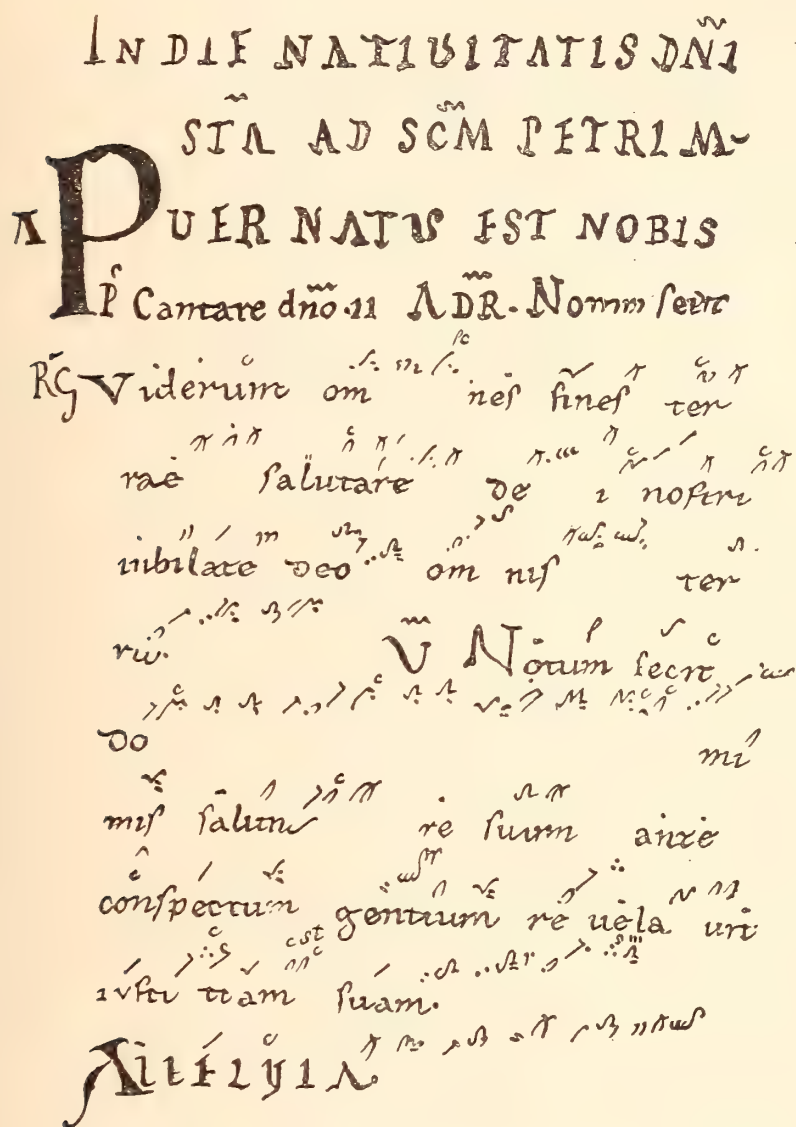 IN DIE NATIUITATIS DÑI
STA AD SCM PETRUM
A PUER NATUS EST NOBIS
P Cantate dño .11 AD R. Notum fecit
RG Viderunt om nes fines ter
rae salutare de i nostri
iubilate deo om nis ter
ra.
V Notum fecit
do mi
nus salutare suum ante
conspectum gentium re uela uit
iusti tiam suam.
ALLELUIA